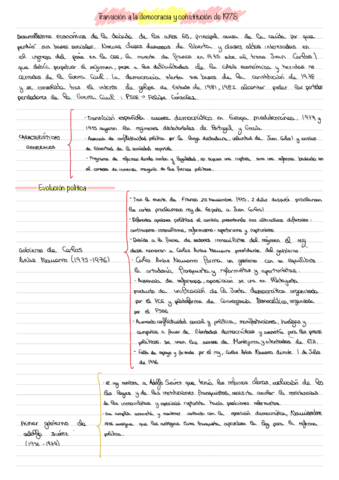 Transición a la democracia y constitución de 1978
Desarrollismo económico de la década de los años 60, principal causa de la caída, ya que
perdió sus bases sociales. Nuevas clases deseosas de libertad, y clases altas interesadas en
el ingreso del país en la CEE, la muerte de Franco en 1975 dejó al trono Juan Carlos I
que debía perpetuar el régimen, pese a las dificultades de la crisis económica, y heridas no
cerradas de la Guerra Civil. La democracia las bases de la constitución de 1978
y se consolida tras el intento de golpe de Estado de 1981, 1982 alcanzar poder los partidos
perdedores de la Guerra Civil: PSOE → Felipe González.
- Transición española: sucesos democráticos en Europa 1974 y
1975 cayeron los regímenes dictatoriales de Portugal, y Grecia
CARACTERÍSTICAS
GENERALES
- Ausencia de conflictividad política por la larga dictadura, voluntad de Juan Carlos I y ansias
de libertad de la sociedad española.
- Programa de reformas desde arriba y legalidad, no supuso una ruptura, sino una reforma basada en
el consenso de diversas fuerzas políticas.
Evolución política
- Tras la muerte de Franco 20 Noviembre 1975, 2 días después proclamaron
las cortes proclamaron rey de España a Juan Carlos I
- Diferentes opciones políticas al cambio, presentando tres alternativas diferentes:
continuismo-inmovilismo, reformismo-aperturismo y rupturismo
- Debido a la fuerza de sectores inmovilistas del régimen el rey
Gobierno de Carlos
Arias Navarro (1975-1976)
decide mantener a Carlos Arias Navarro presidente del gobierno.
- Carlos Arias Navarro forma un gobierno con un equilibrio
la ortodoxia franquista y reformistas y aperturistas.
- Ausencia de reformas, oposición se une en Platajunta
producto de unificación de la Junta Democrática organizada
por el PCE y plataforma de Convergencia Democrática, organizada
por el PSOE
- Aumento conflictividad social y política, manifestaciones, huelgas y
campañas a favor de libertades democráticas y amnistía para los presos
políticos, se unen los sucesos de Montejurra y atentados de ETA.
- Falta de apoyo y por el rey, Carlos Arias Navarro dimite 1 de Julio
de 1976
- el rey nombra a Adolfo Suárez que tenía las reformas claras, evolución de las
las leyes y de las instituciones franquistas, necesita anular la resistencia
de los inmovilistas y oposición rupturista hacia posiciones reformistas.
Primer gobierno de
Adolfo Suárez
(1976-1979)
- Da amplia amnistía, y mantener contacto con la oposición democrática, Noviembre
1976 consigue que las antiguas Cortes franquistas, aprueben la Ley para la reforma
política.